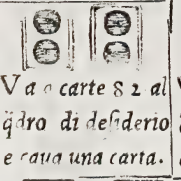 Va a carte 82 al
q̃dro di desiderio
e caua una carta.